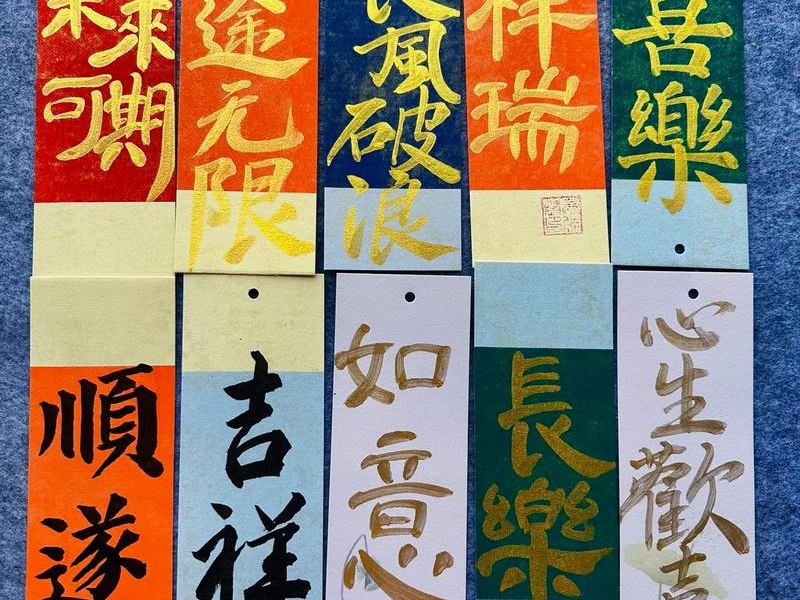 未來可期
途无限
長風破浪
祥瑞
喜樂
順遂
吉祥
如意
長樂
心生歡喜